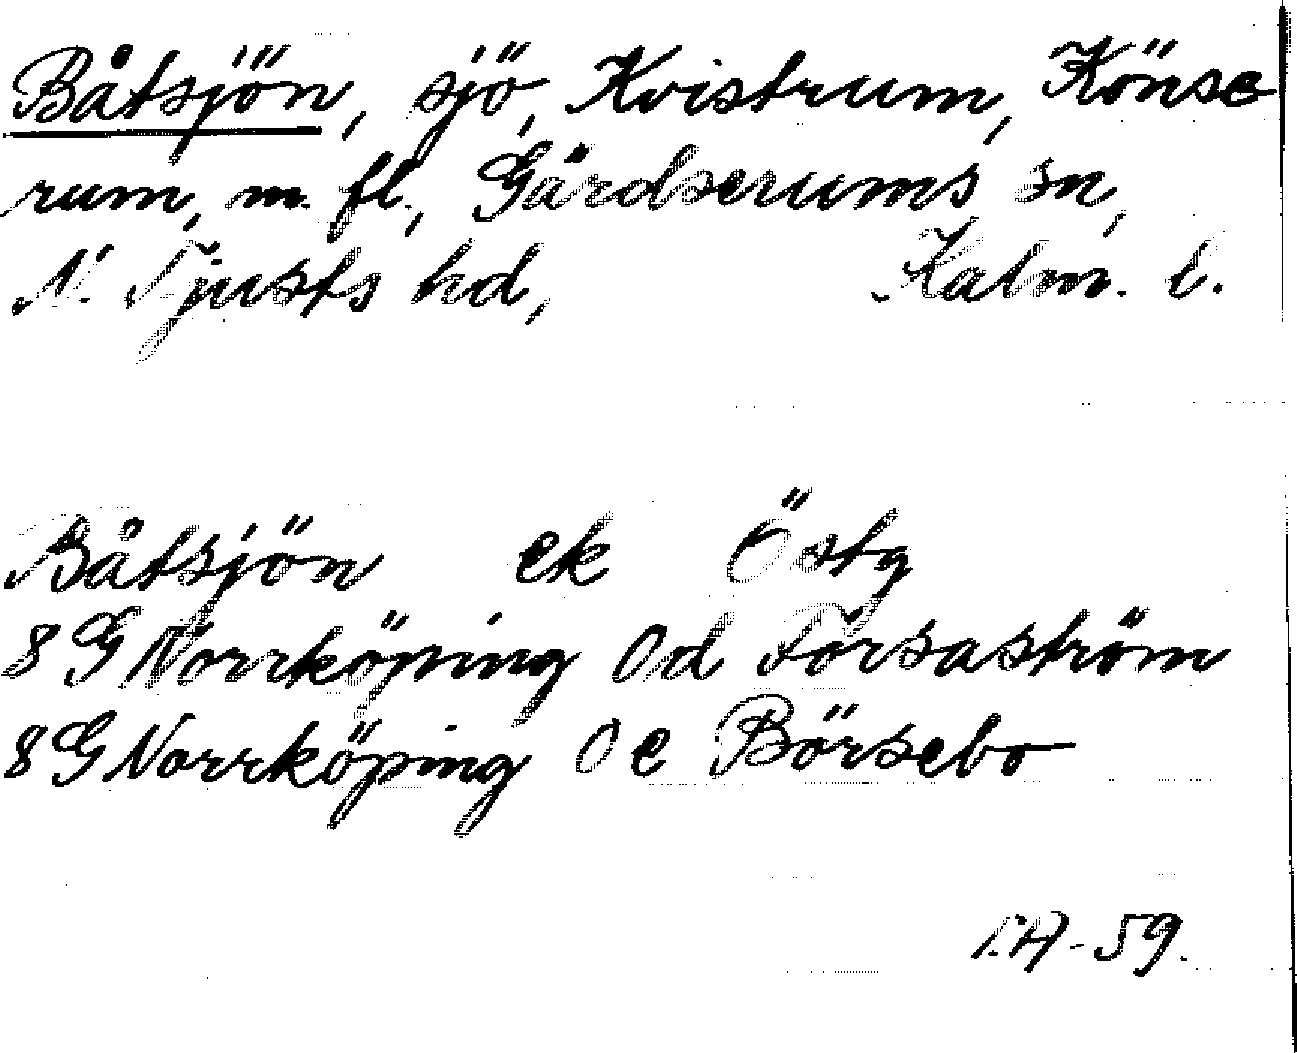 Båtsjön, sjö, Kvistrum, Könse
rum, m. fl., Gärdserums sn,
N. Tjusts hd, Kalm. l.
Båtsjön ek Östg
8 G Norrköping 0d Forsaström
8 G Norrköping 0e Börsebo
I.H-59.